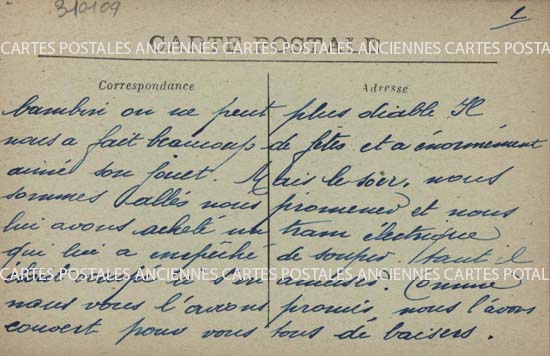 310109
CARTE POSTALE
CARTES POSTALES ANCIENNES CARTES POSTALES ANCIENNES CARTES POSTALES
Correspondance
Adresse
bambin on ne peut plus diable Il
nous a fait beaucoup de fetes et a énormément
aimé son jouet. Mais le soir, nous
sommes allés nous promener et nous
lui avons acheté un tram électrique
qui lui a empêché de souper. Tant il
CARTES POSTALES ANCIENNES CARTES POSTALES ANCIENNES CARTES POSTALES
à s'en amuser. Comme
nous vous l'avions promis, nous l'avons
couvert pour vous tous de baisers.